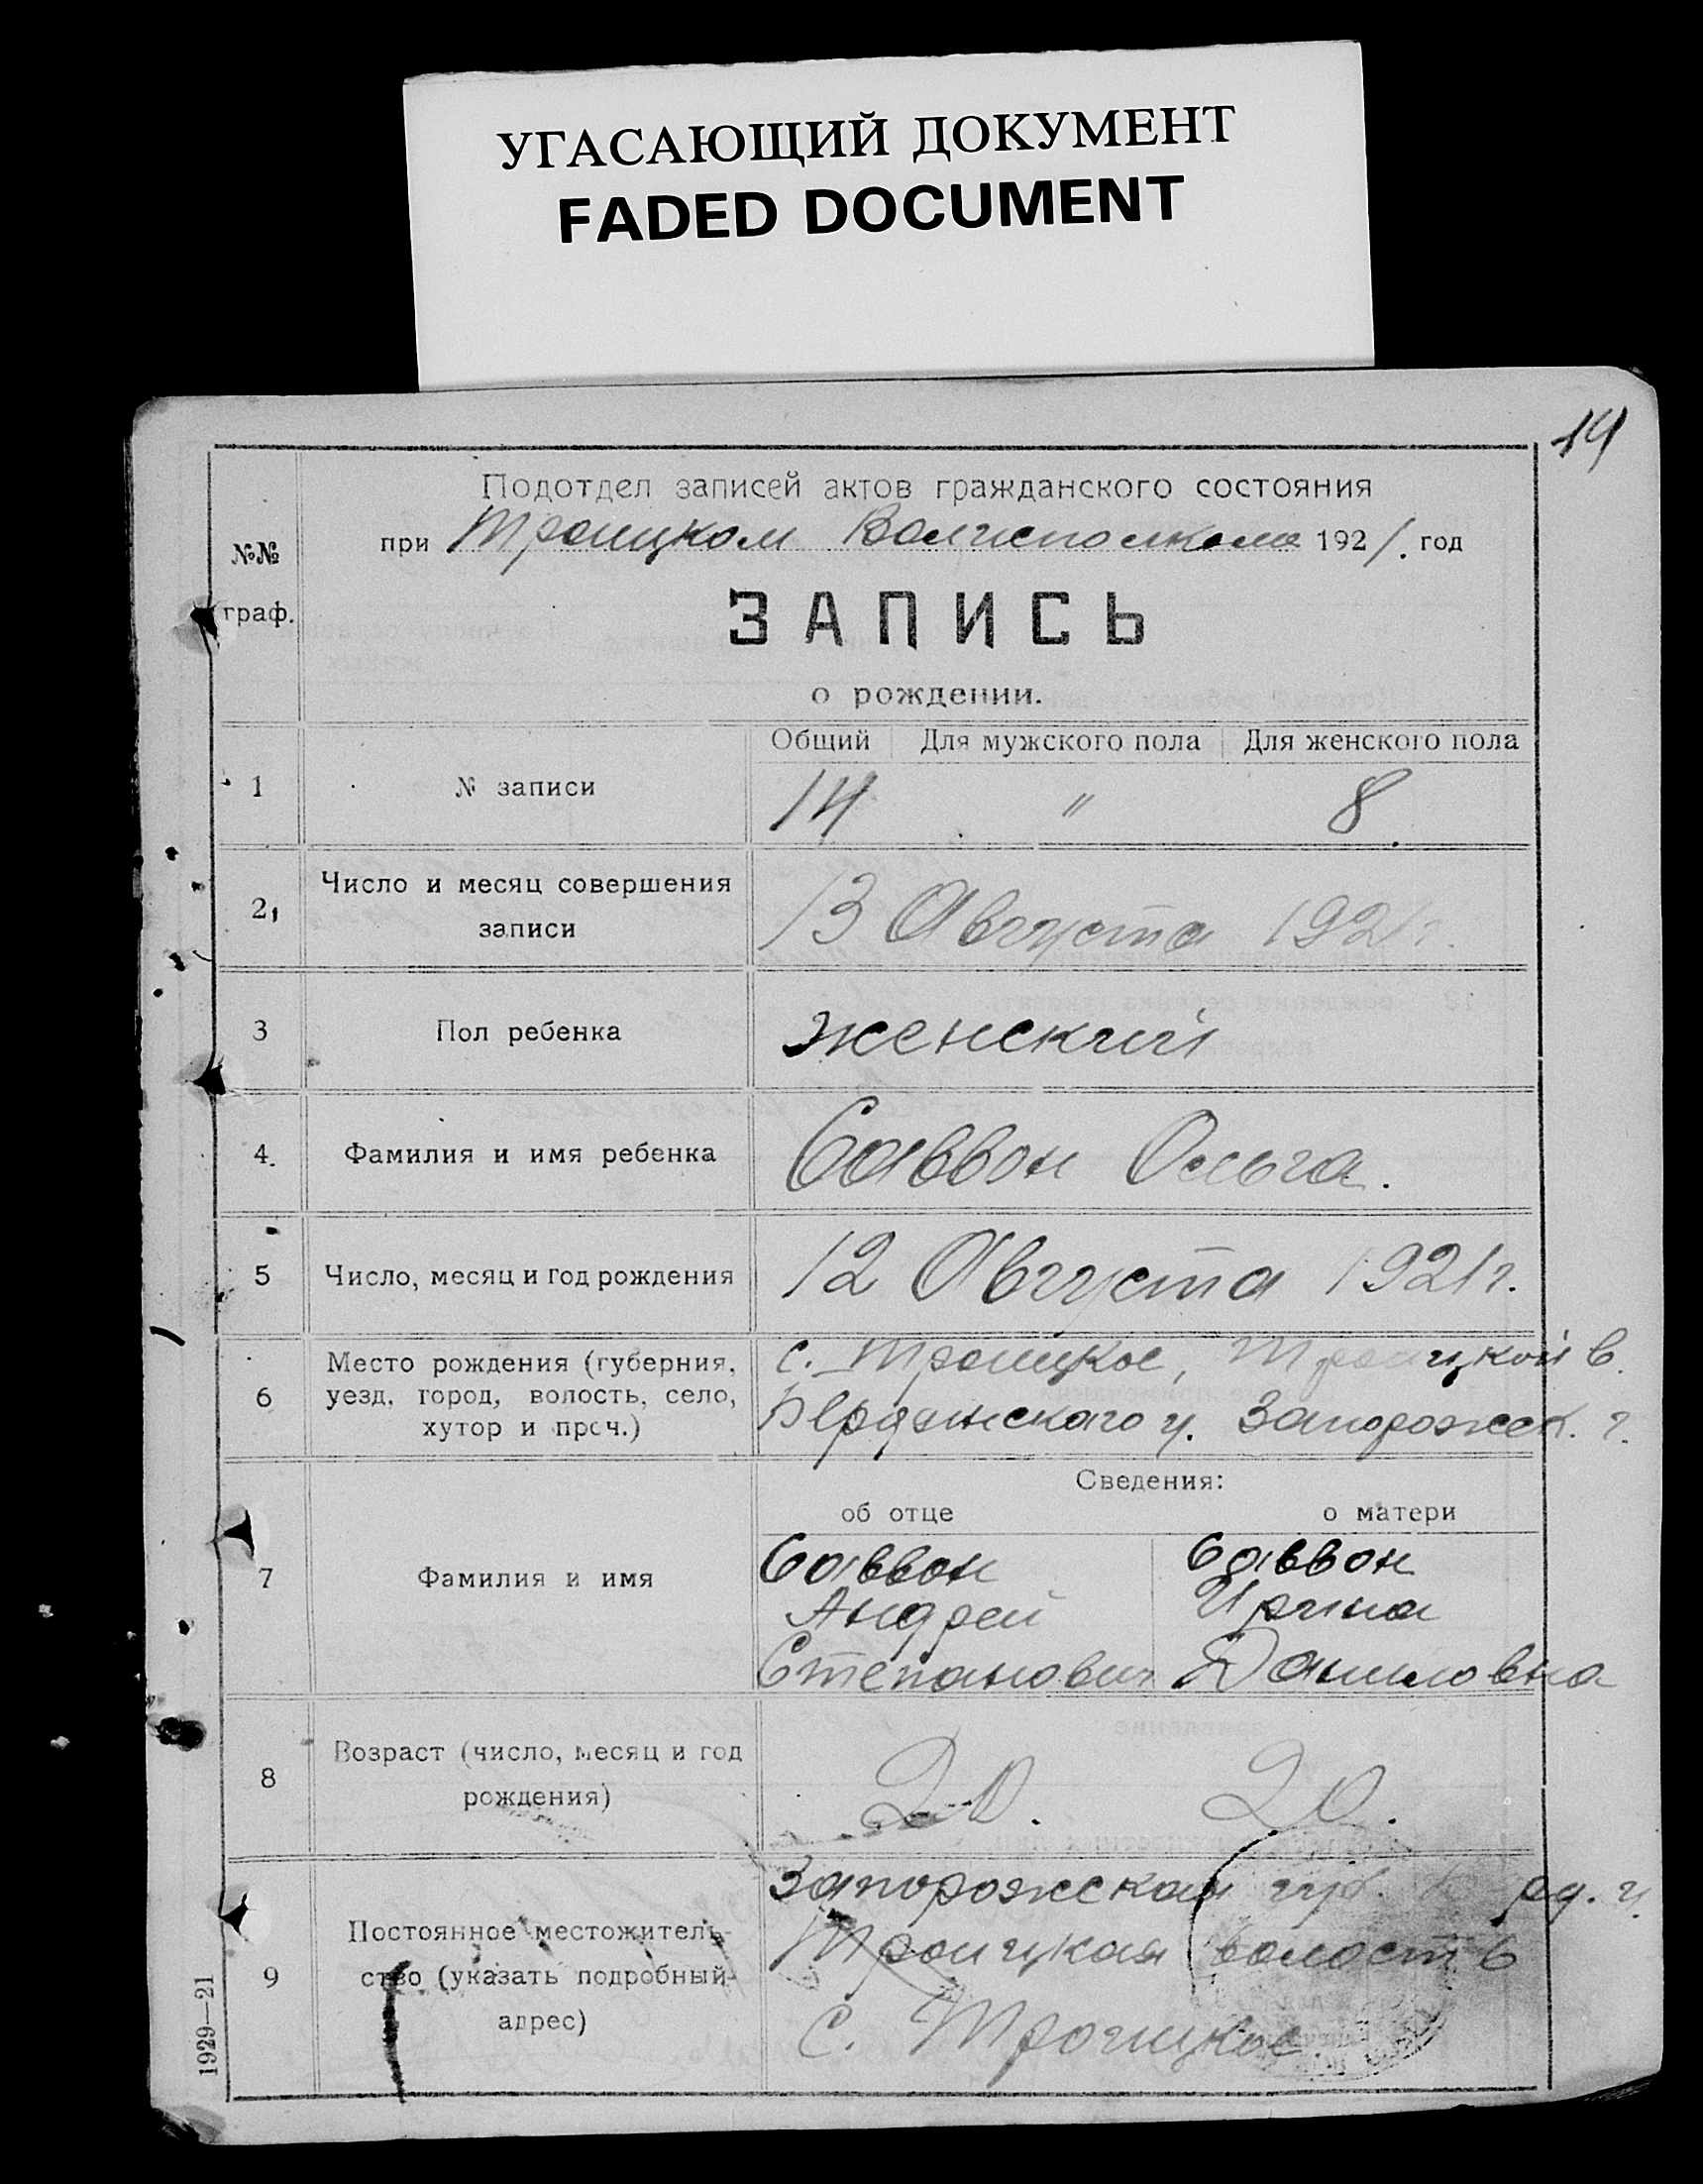 УГАСАЮЩИЙ ДОКУМЕНТ
FADED DOCUMENT
14
Подотдел записей актов гражданского состояния
№№ граф.
при Троицком Волисполкоме 1921. год
ЗАПИСЬ
о рождении.
Общий Для мужского пола Для женского пола
1 № записи 14 " 8
2 Число и месяц совершения записи 13 Августа 1921 г.
3 Пол ребенка женский
4. Фамилия и имя ребенка Саввон Ольга.
5 Число, месяц и год рождения 12 Августа 1921 г.
6 Место рождения (губерния, уезд, город, волость, село, хутор и проч.)
с. Троицкое, Троицкой в.
Бердянского у. Запорожск. г.
Сведения:
об отце о матери
7 Фамилия и имя
Саввон Саввон
Андрей Ирина
Степанович Даниловна
8 Возраст (число, месяц и год рождения) 20. 20.
9 Постоянное местожительство (указать подробный адрес)
Запорожская губ. рд. у.
Троицкая волость
с. Троицкое
1929—21